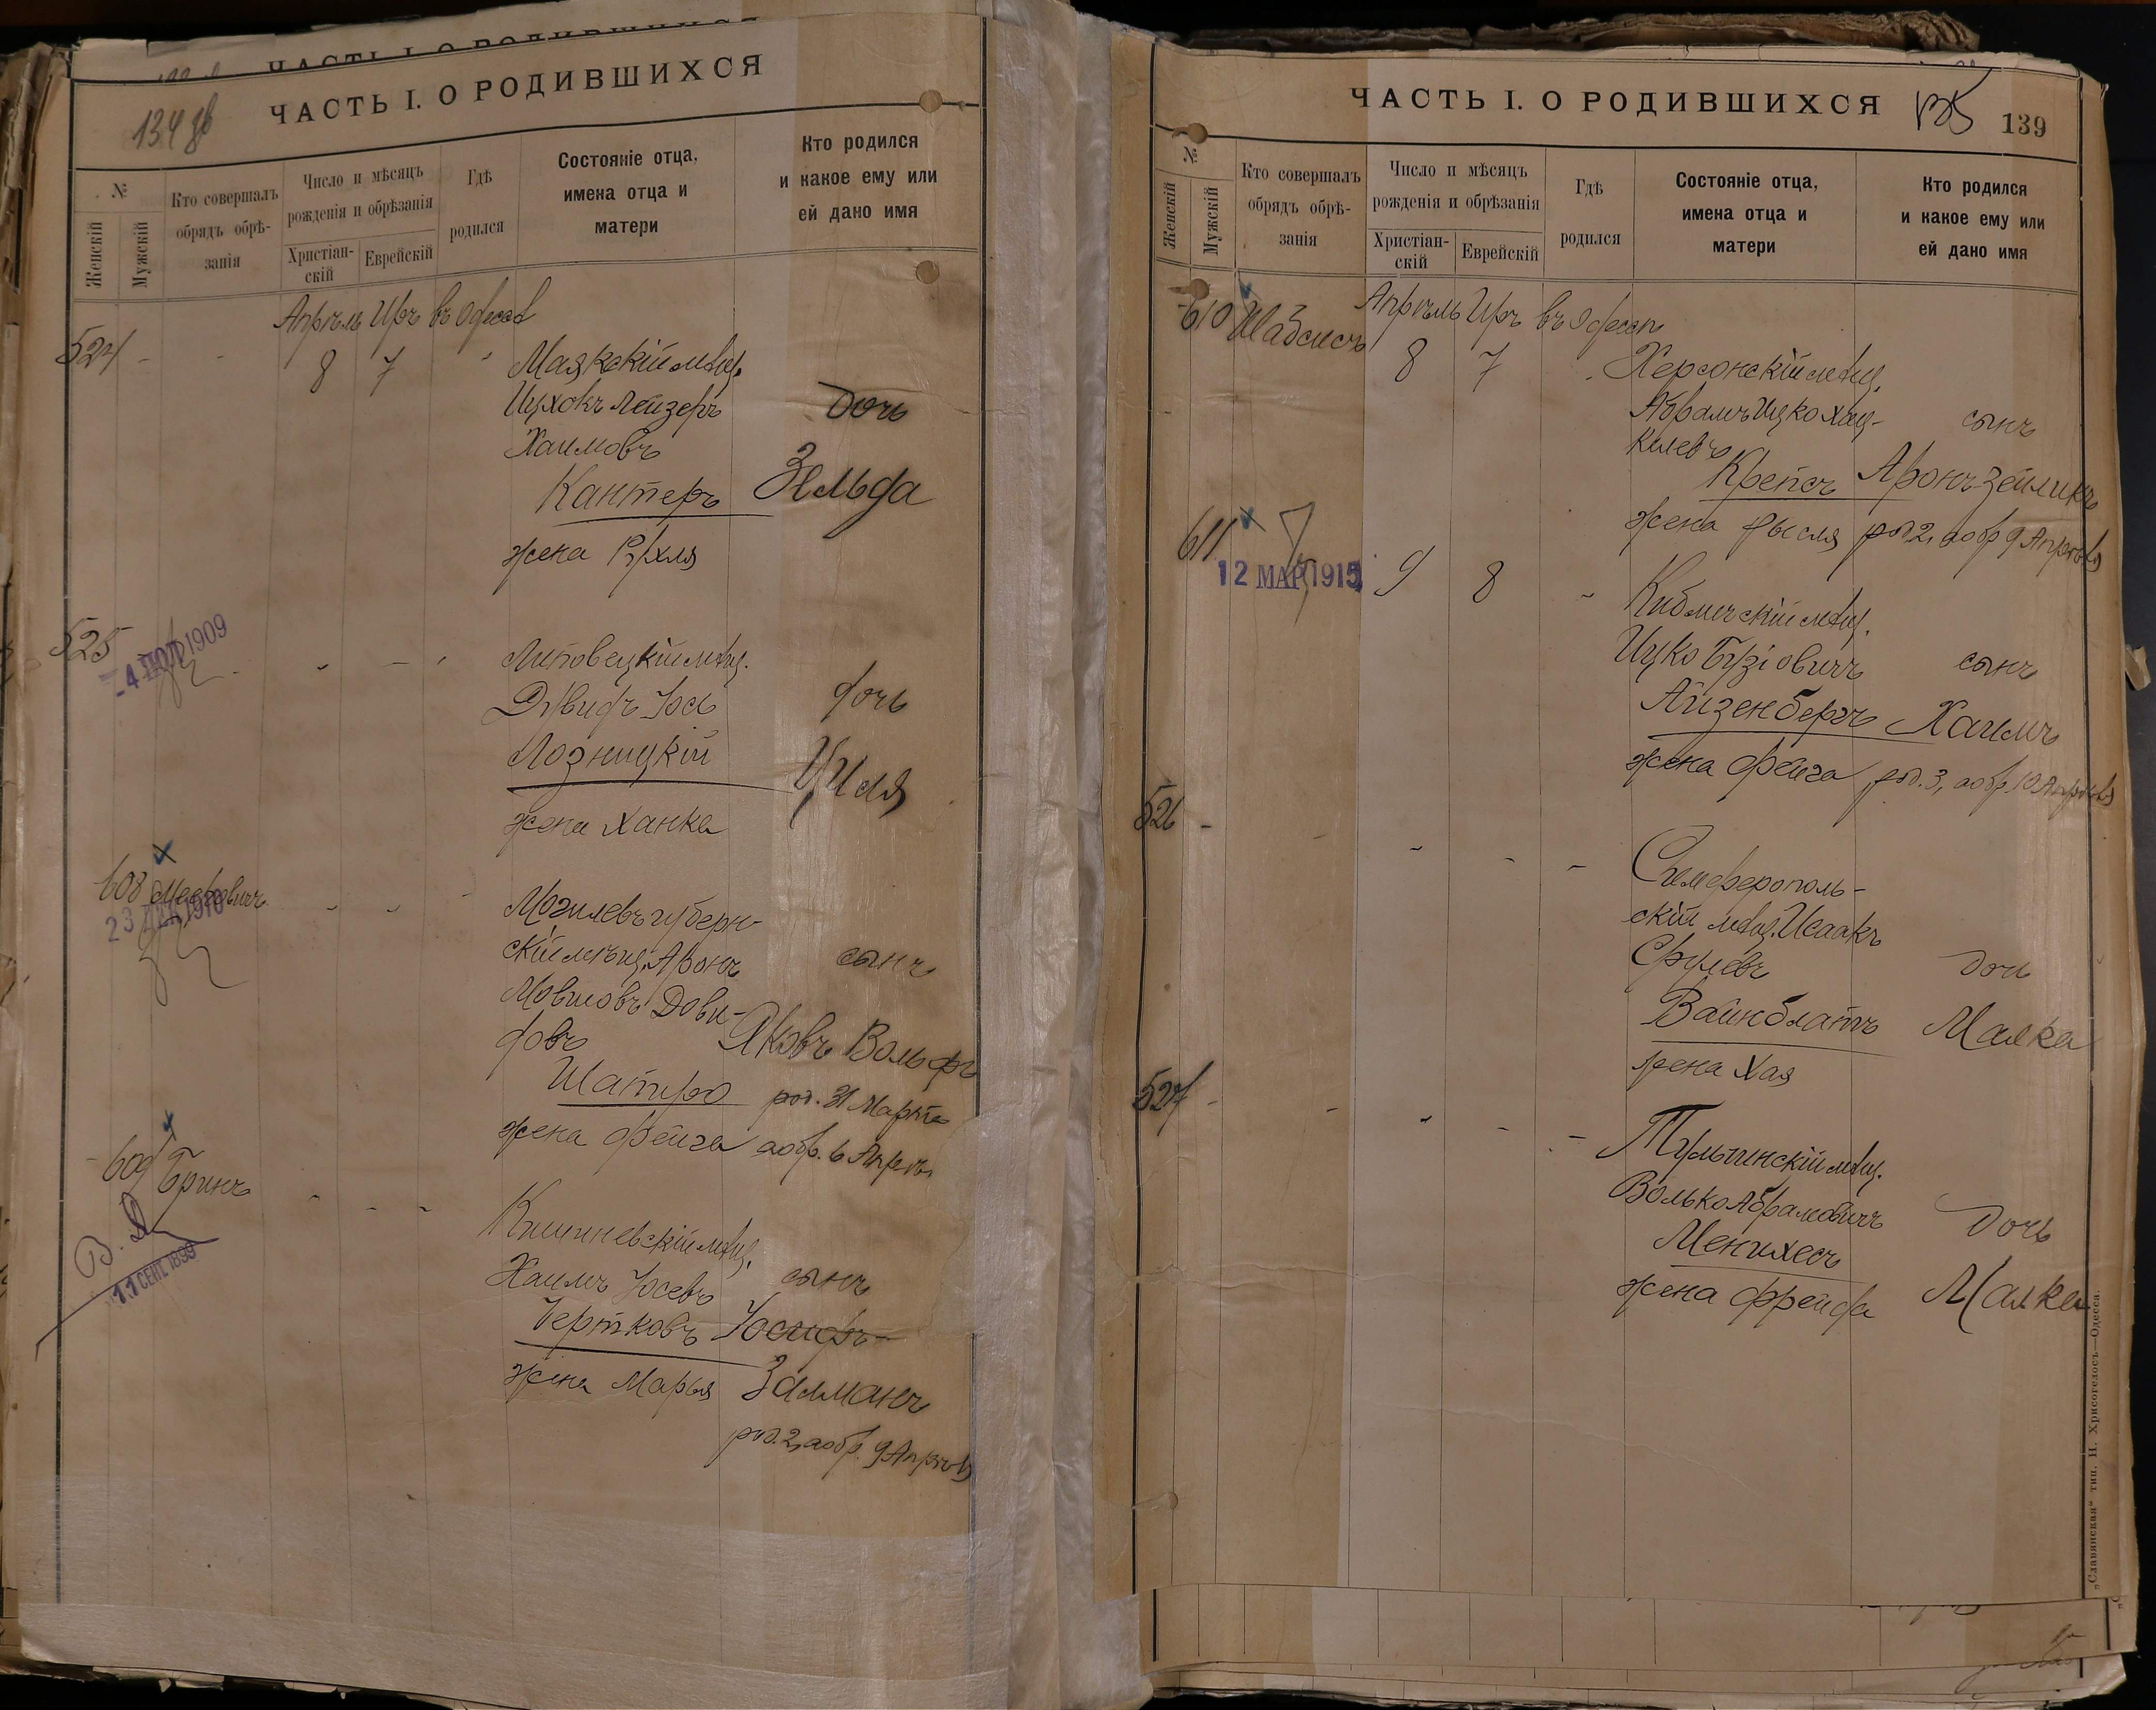 ЧАСТЬ I. О РОДИВШИХСЯ
134 об
№
Женскій
Мужскій
Кто совершалъ
обрядъ обрѣ-
занія
Число и мѣсяцъ
рожденія и обрѣзанія
Христіан-
скій
Еврейскій
Гдѣ
родился
Состояніе отца,
имена отца и
матери
Кто родился
и какое ему или
ей дано имя
Апрѣль Иръ въ Одессѣ
524 - - 8 7 Маякскій мѣщ.
Ицхокъ Лейзеръ дочь
Хаимовъ
Кантеръ Зельда
жена Рухля
525
4 1909
Липовецкій мѣщ.
Дувидъ Іось дочь
Лозницкій Циля
жена Ханка
608
23 ДЕК 1910
Могилевъ губерн-
скій мѣщ. Аронъ сынъ
Мовшовъ Дови-
довъ Яковъ Вольфъ
Шапиро род. 31 Марта
жена Фейга а обр. 6 Апрѣл.
609 Бринъ
11 СЕНТ. 1899
Кишиневскій мѣщ.
Хаимъ Іосевъ сынъ
Чертковъ Іосифъ
жена Марья Залманъ
род. 2, а обр. 9 Апрѣля
ЧАСТЬ I. О РОДИВШИХСЯ
135
139
№
Женскій
Мужскій
Кто совершалъ
обрядъ обрѣ-
занія
Число и мѣсяцъ
рожденія и обрѣзанія
Христіан-
скій
Еврейскій
Гдѣ
родился
Состояніе отца,
имена отца и
матери
Кто родился
и какое ему или
ей дано имя
Апрѣль Иръ въ Одессѣ
610 Шабсисъ 8 7 Херсонскій мѣщ.
Абрамъ Ицко Хац- сынъ
келевъ
Крейсъ Аронъ-Зейликъ
жена род. 2, а обр. 9 Апрѣля
611
12 МАР 1915
9 8 Кублическій мѣщ.
Ицко Бузіовичъ сынъ
Айзенбергъ Хаимъ
жена Фейга род. 3, а обр. 10 Апрѣля
526 -
Симферополь-
скій мѣщ. Исаакъ
Срулевъ дочь
Вайнблатъ Малка
жена Хая
527 -
Тульчинскій мѣщ.
Волько Абрамовичъ дочь
Менихесъ
жена Фрейда Малка
„Славянская“ тип. Н. Хрисогелосъ—Одесса.